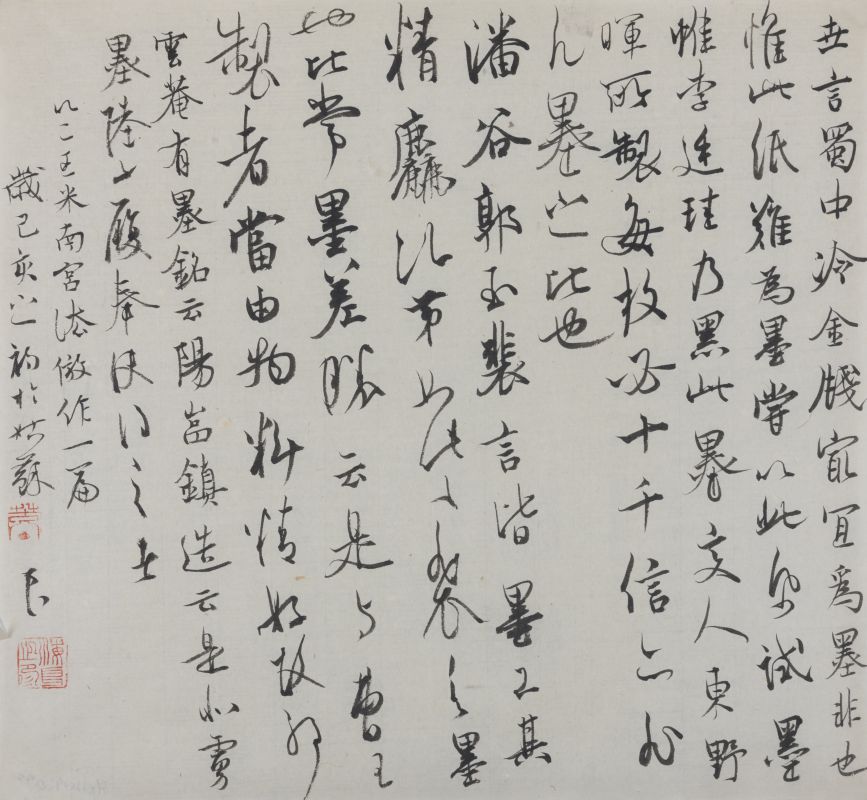 世言蜀中冷金牋最宜為墨非也
惟此紙難為墨嘗以此紙試墨
惟李廷珪乃黑此墨文人東野
暉所製每枚必十千信亦非
凡墨之比也
潘谷郭玉裴言皆墨工其
精麤次第如此此裴言墨
也比常墨差勝云是与曹王
製者當由物料精好故耶
雲菴有墨銘云陽嵓鎮造云是北虜
墨陸子履奉使得之者
以二王米南宮法倣作一篇
歲己亥之初於姑蘇